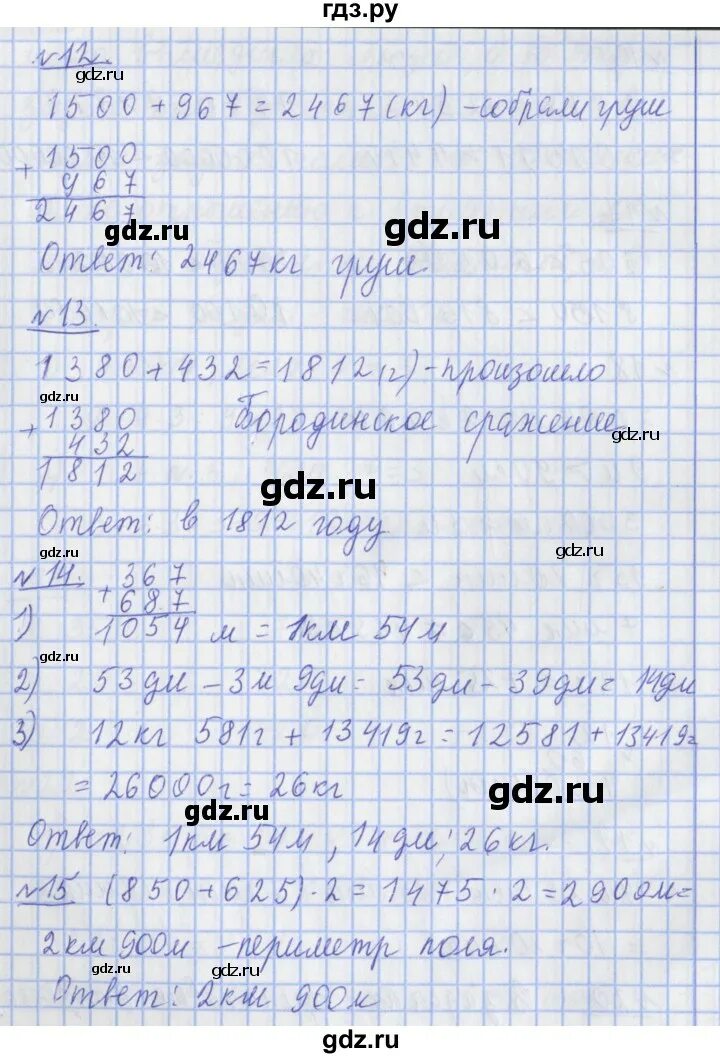 гдз.ру
№12.
gdz.ru
1500 + 967 = 2467 (кг) - собрали груш
+ 1500
967
2467
gdz.ru
gdz.ru
Ответ: 2467 кг груш.
№13.
1380 + 432 = 1812 (г) - произошло
gdz.ru
+ 1380 Бородинское сражение
432
gdz.ru
1812
gdz.ru
Ответ: в 1812 году
gdz.ru
№14. + 367
687
1) 1054 м = 1км 54м
gdz.ru
2) 53дм - 3м 9дм = 53дм - 39дм = 14дм
3) 12кг 581г + 13419г = 12581 + 13419г
= 26000г = 26кг
gdz.ru
gdz.ru
Ответ: 1км 54м, 14дм; 26кг.
№15 (850 + 625) · 2 = 1475 · 2 = 2900м =
2км 900м - периметр поля.
gdz.ru
gdz.ru
Ответ: 2км 900м
gdz.ru